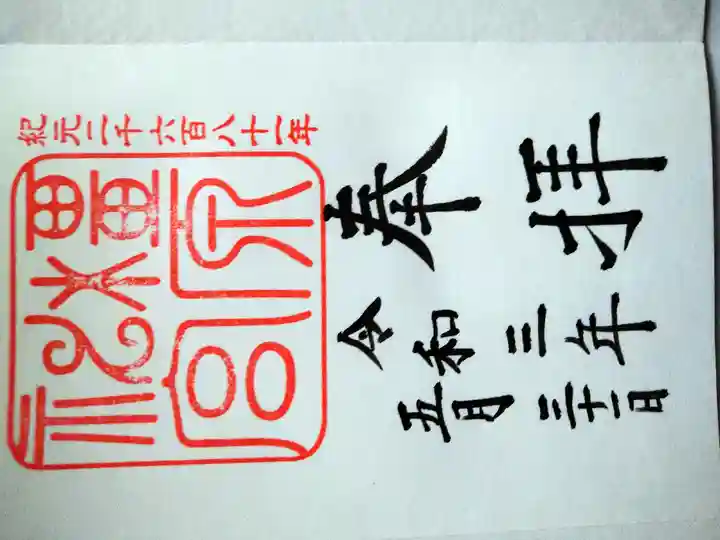 紀元二千六百八十一年
橿原神宮
奉拝
令和三年
五月三十一日